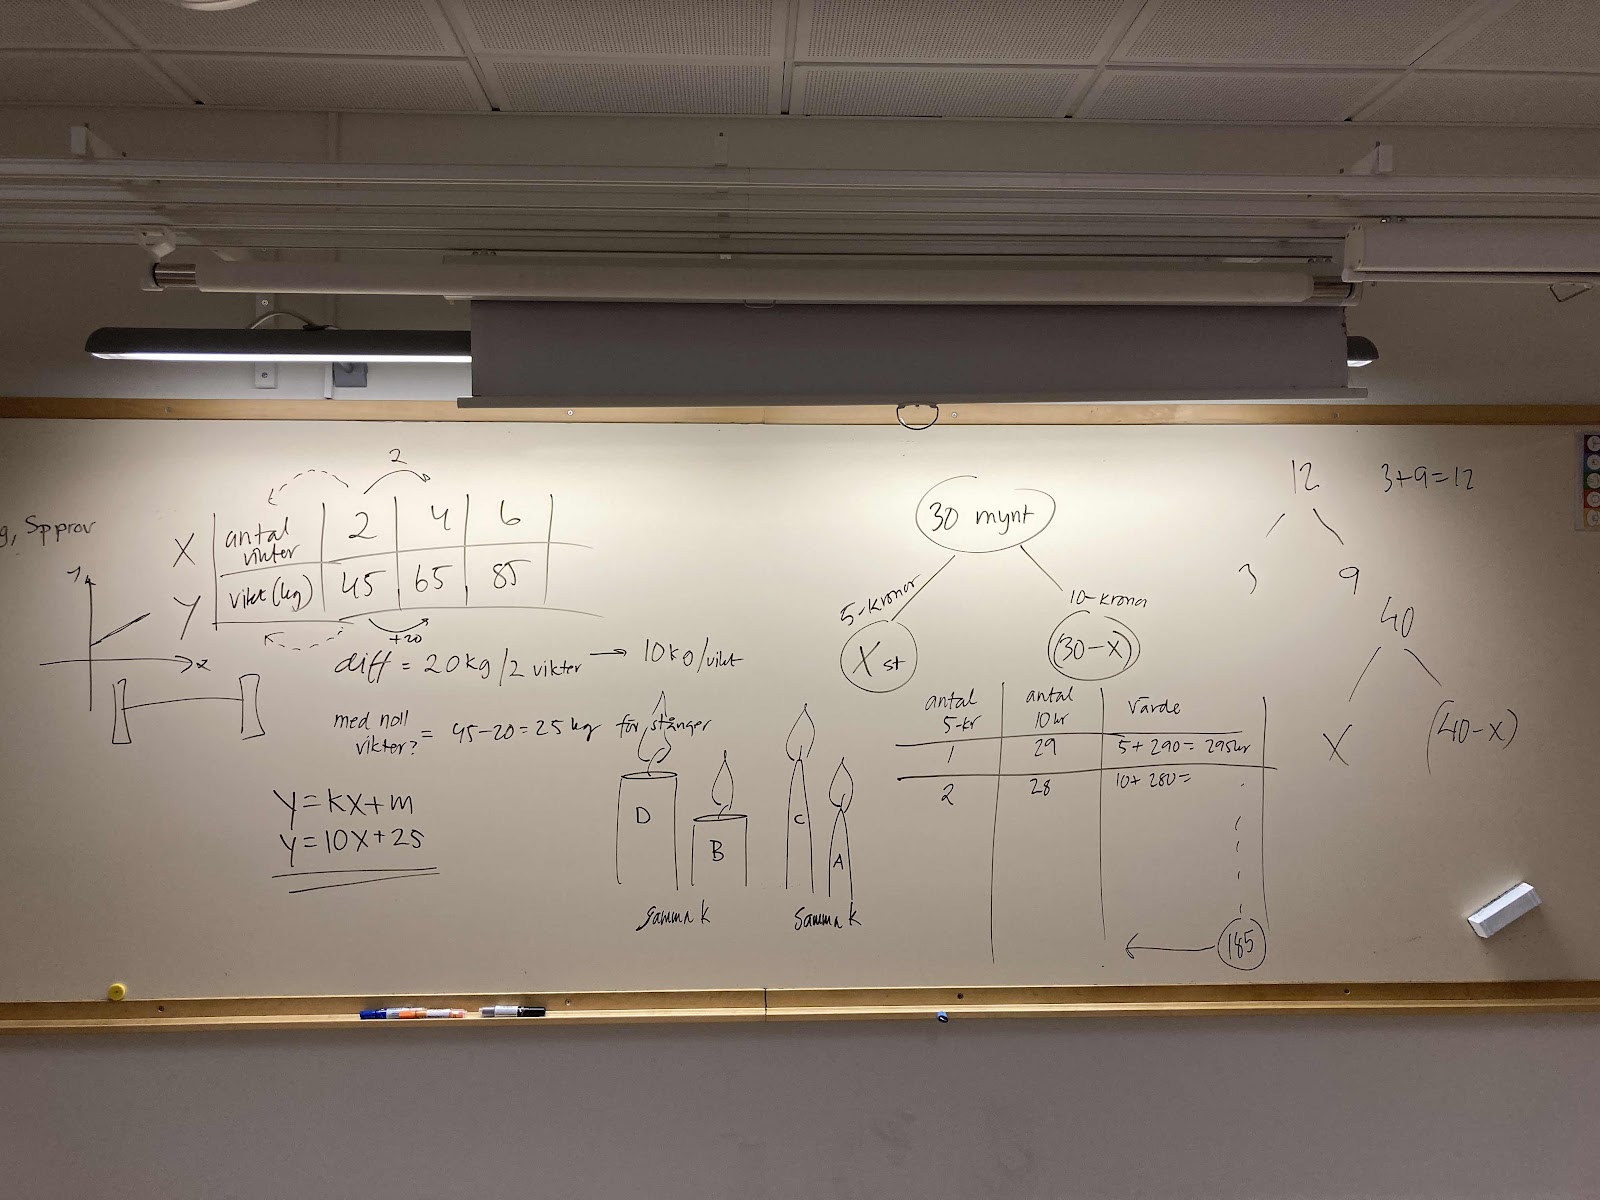 g, Spprov
y
x
2
X antal vikter 2 4 6
Y vikt (kg) 45 65 85
+20
diff = 20kg/2 vikter → 10kg/vikt
med noll
vikter? = 45-20=25kg för stånger
y=kx+m
y=10x+25
D
B
C
A
samma k
samma k
30 mynt
5-kronor
10-kronor
X st
(30-x)
antal 5-kr antal 10kr Värde
1 29 5+290=295kr
2 28 10+280=
185
12
3+9=12
3 9
40
X (40-x)